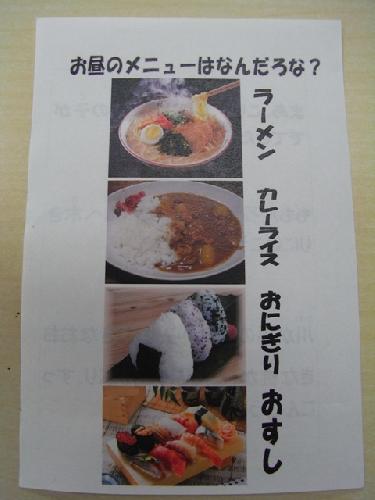 お昼のメニューはなんだろな？
ラーメン
カレーライス
おにぎり
おすし